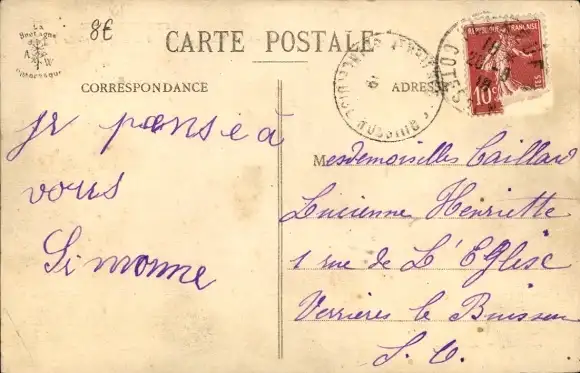 La
Bretagne
A W
Pittoresque
8E
CARTE POSTALE
CORRESPONDANCE
ADRES
RÉPUBLIQUE FRANÇAISE
10c
je panse à
vous
Simonne
Mesdemoiselles Caillard
Lucienne Henriette
1 rue de L'Eglise
Verrières le Buisson
S. O.